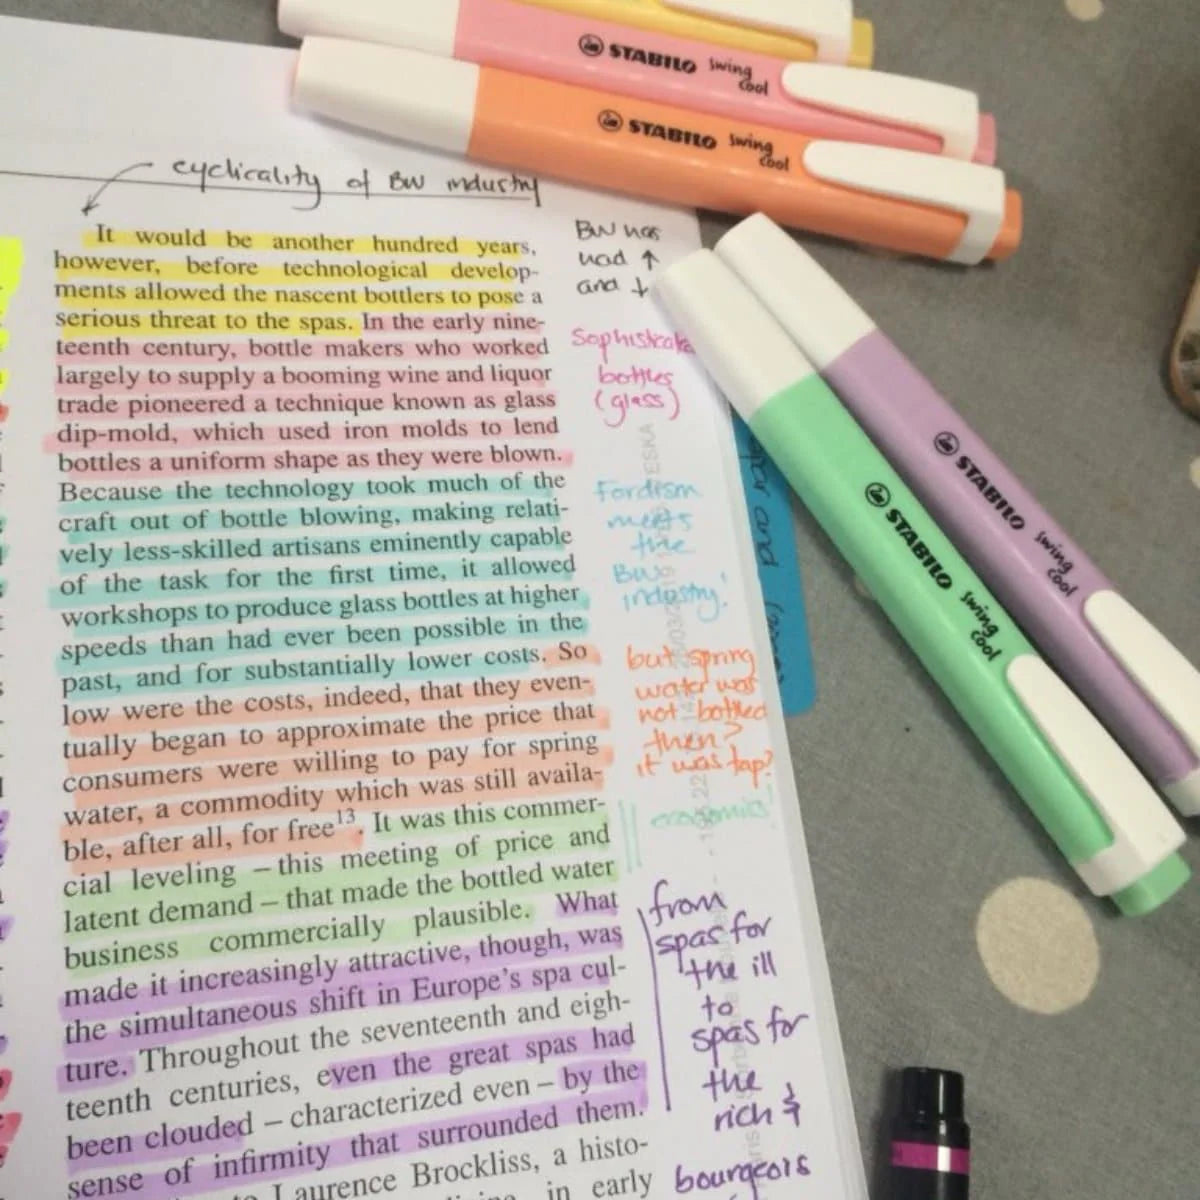 STABILO swing cool
STABILO swing cool
cyclicality of BW industry
It would be another hundred years,
however, before technological develop-
ments allowed the nascent bottlers to pose a
serious threat to the spas. In the early nine-
teenth century, bottle makers who worked
largely to supply a booming wine and liquor
trade pioneered a technique known as glass
dip-mold, which used iron molds to lend
bottles a uniform shape as they were blown.
Because the technology took much of the
craft out of bottle blowing, making relati-
vely less-skilled artisans eminently capable
of the task for the first time, it allowed
workshops to produce glass bottles at higher
speeds than had ever been possible in the
past, and for substantially lower costs. So
low were the costs, indeed, that they even-
tually began to approximate the price that
consumers were willing to pay for spring
water, a commodity which was still availa-
ble, after all, for free13. It was this commer-
cial leveling – this meeting of price and
latent demand – that made the bottled water
business commercially plausible. What
made it increasingly attractive, though, was
the simultaneous shift in Europe's spa cul-
ture. Throughout the seventeenth and eigh-
teenth centuries, even the great spas had
been clouded – characterized even – by the
sense of infirmity that surrounded them.
Laurence Brockliss, a histo-
in early
BW has
had ↑
and ↓
bottles
(glass)
Fordism
meets
the
BW
industry!
but spring
water was
not bottled
then?
it was tap?
economics!
from
spas for
the ill
to
spas for
the
rich &
bourgeois
STABILO swing cool
STABILO swing cool